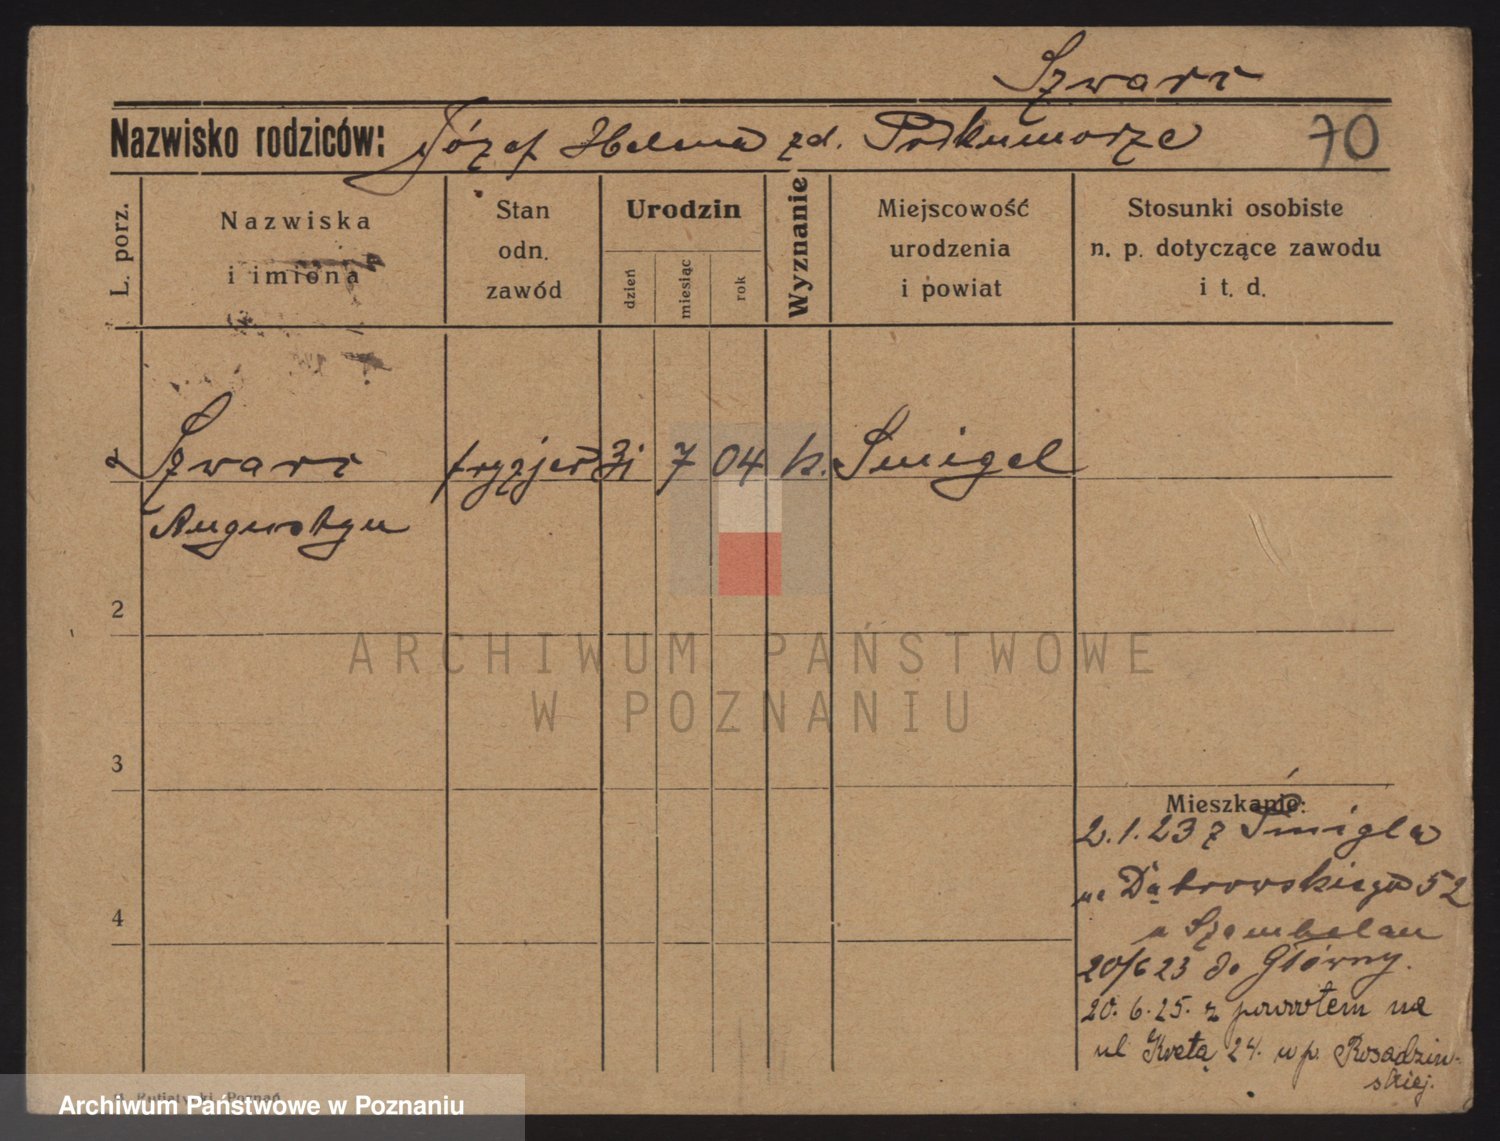 Szwarc
Nazwisko rodziców: Józef Helena zd. 70
L. porz.
Nazwiska
i imiona
Stan
odn.
zawód
Urodzin
dzień
miesiąc
rok
Wyznanie
Miejscowość
urodzenia
i powiat
Stosunki osobiste
n. p. dotyczące zawodu
i t. d.
1 Szwarc fryzjer 31 7 04 k. Śmigel
Augustyn
2
3
4
Mieszkanie:
2.1.23 z Śmigla
na Dąbrowskiego 52
u Szambelan
20/6 23 do Główny.
20.6.25. z powrotem na
ul 24. u p.
ARCHIWUM PAŃSTWOWE
W POZNANIU
Poznań
Archiwum Państwowe w Poznaniu